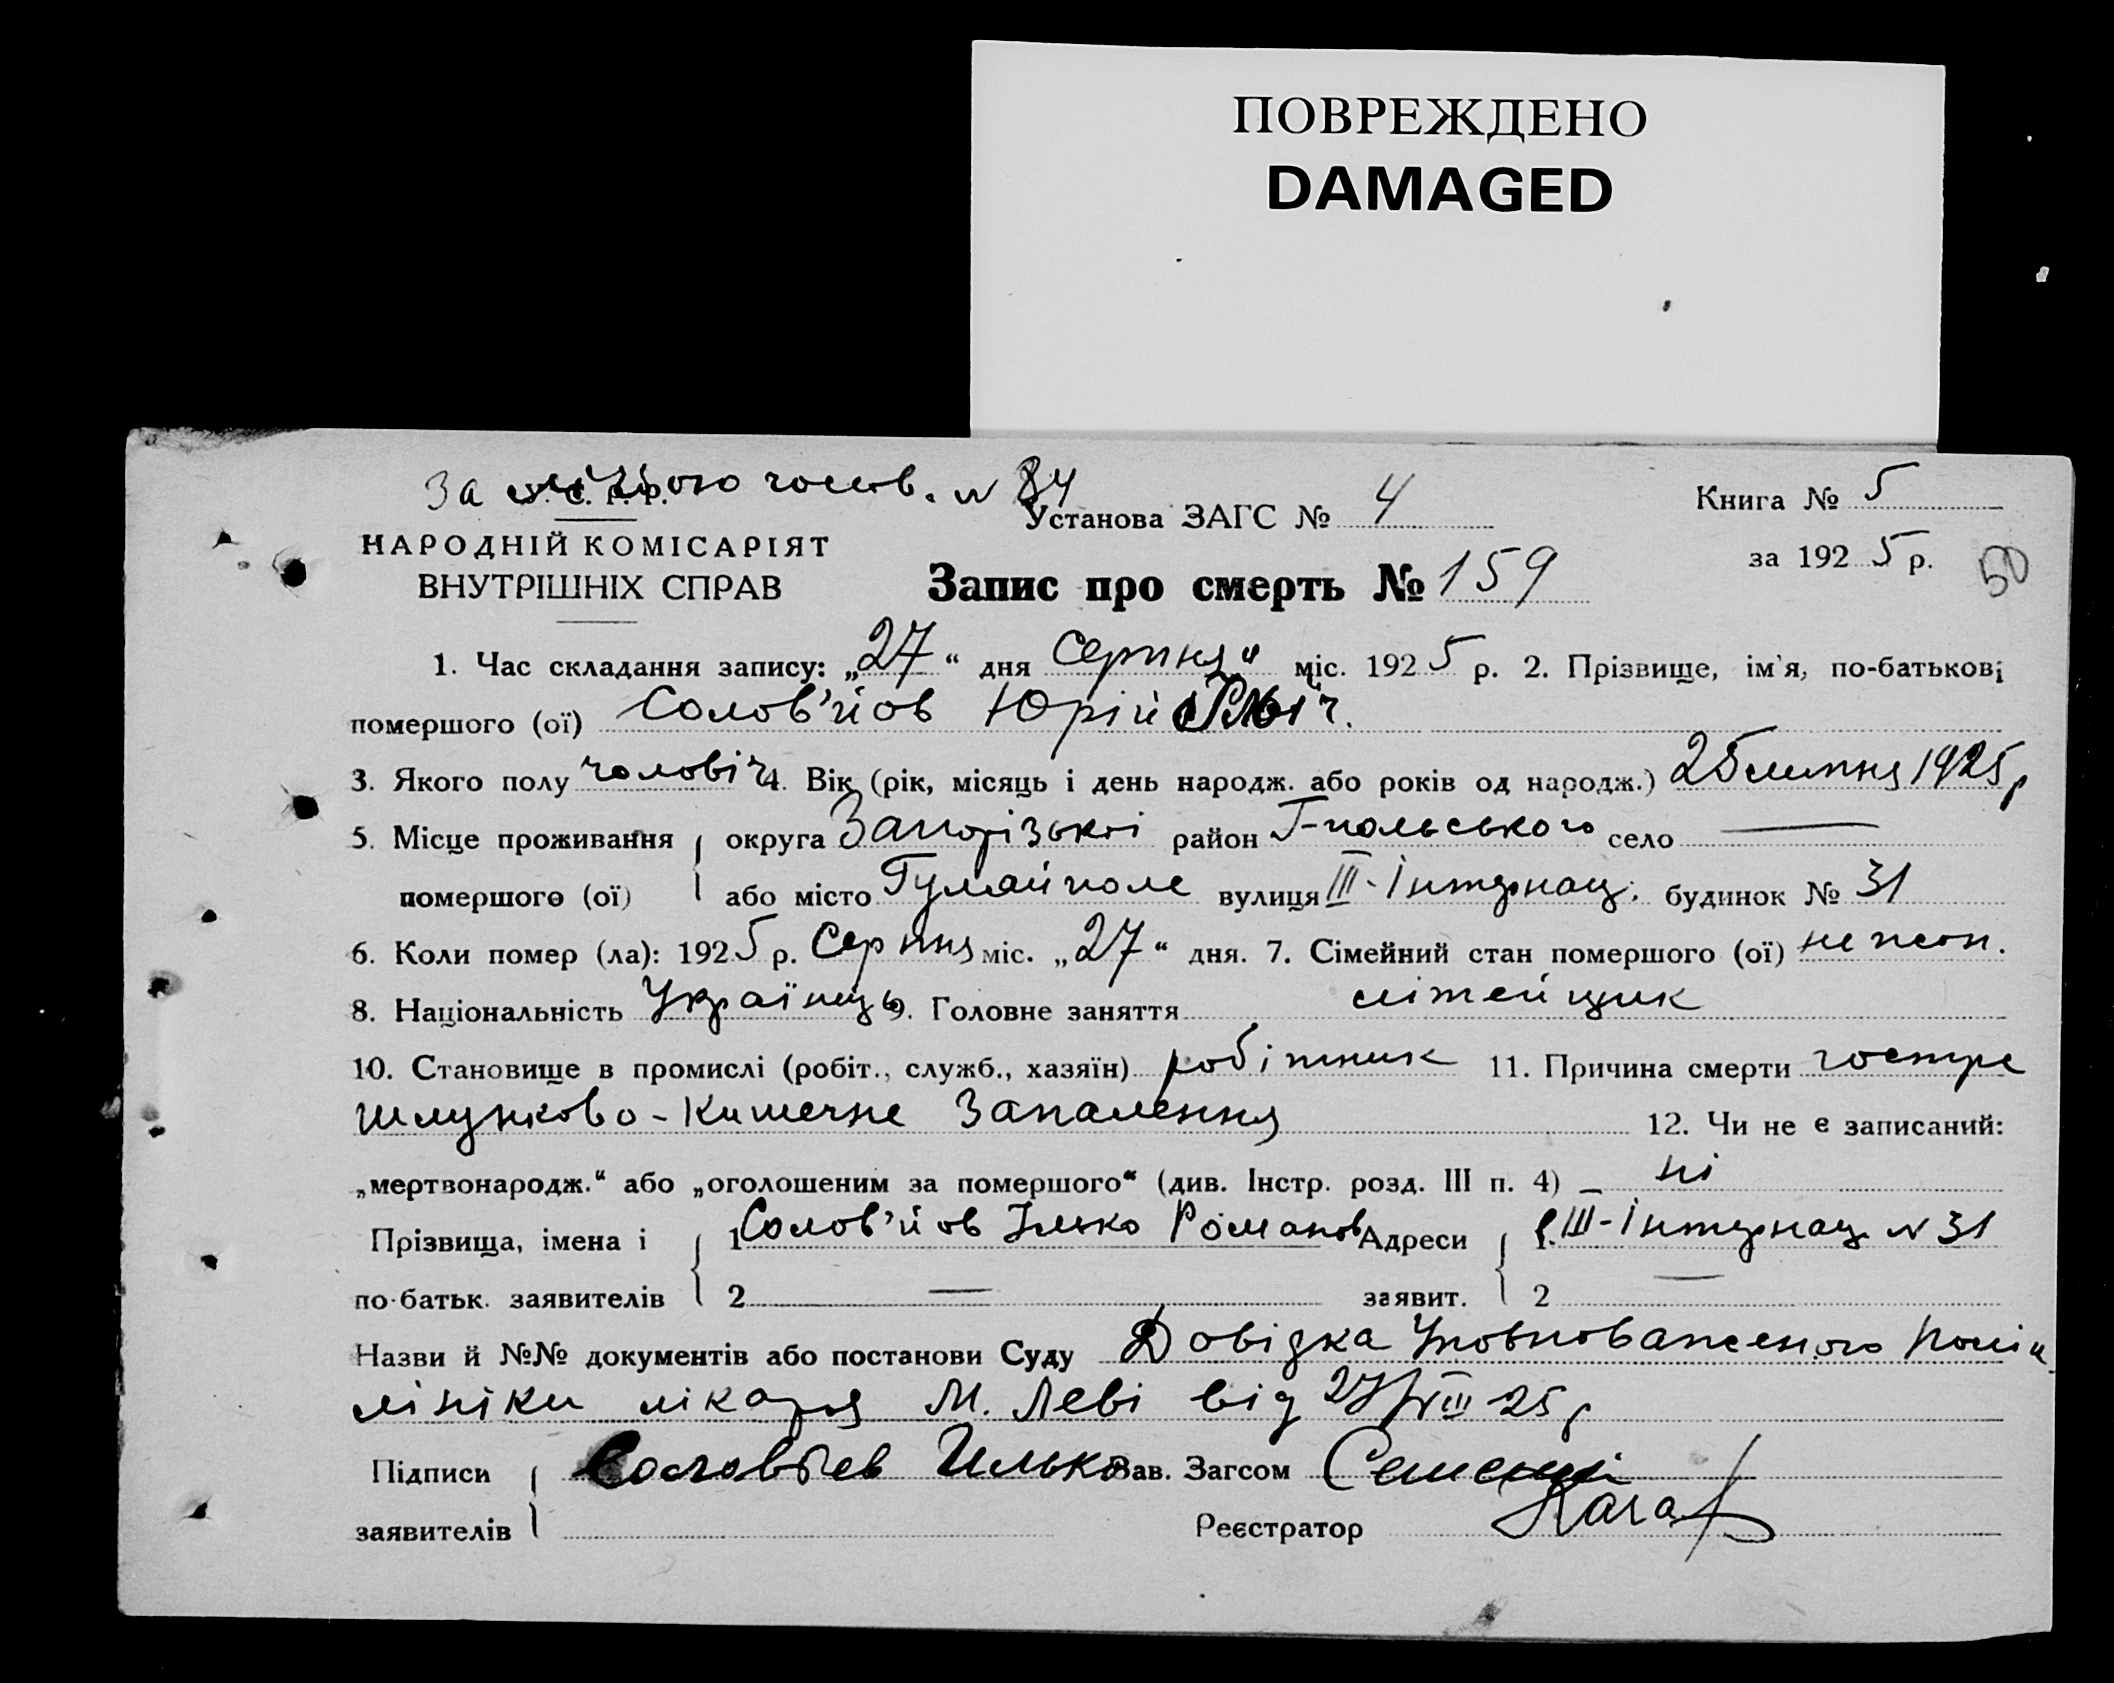 ПОВРЕЖДЕНО
DAMAGED
За місяцю чолов. № 84
У. С. Р. Р.
Установа ЗАГС № 4
Книга № 5
НАРОДНІЙ КОМІСАРІЯТ
ВНУТРІШНІХ СПРАВ
за 1925 р.
50
Запис про смерть № 159
1. Час складання запису: „27“ дня Серпня міс. 1925 р. 2. Прізвище, ім'я, по-батькові
помершого (ої) Солов'йов Юрій Ільіч.
3. Якого полу чоловіч 4. Вік (рік, місяць і день народж. або років од народж.) 25 липня 1925 р
5. Місце проживання округа Запорізької район Г-польського село —
помершого (ої) або місто Гуляйполе вулиця III-Інтернац. будинок № 31
6. Коли помер (ла): 1925 р. Серпня міс. „27“ дня. 7. Сімейний стан помершого (ої) не жон.
8. Національність Українець 9. Головне заняття літейщик
10. Становище в промислі (робіт., служб., хазяїн) робітник 11. Причина смерти гостре
шлунково-кишечне запалення 12. Чи не є записаний:
„мертвонародж.“ або „оголошеним за помершого“ (див. Інстр. розд. III п. 4) — ні
Прізвища, імена і 1 Солов'йов Ілько Романов Адреси 1. III-Інтернац № 31
по-батьк. заявителів 2 — заявит. 2 —
Назви й №№ документів або постанови Суду Довідка Уповноваженого полік
лініки лікаря М. Леві від 27/VIII 25 р
Підписи Соловьев Илько Зав. Загсом
заявителів Реєстратор